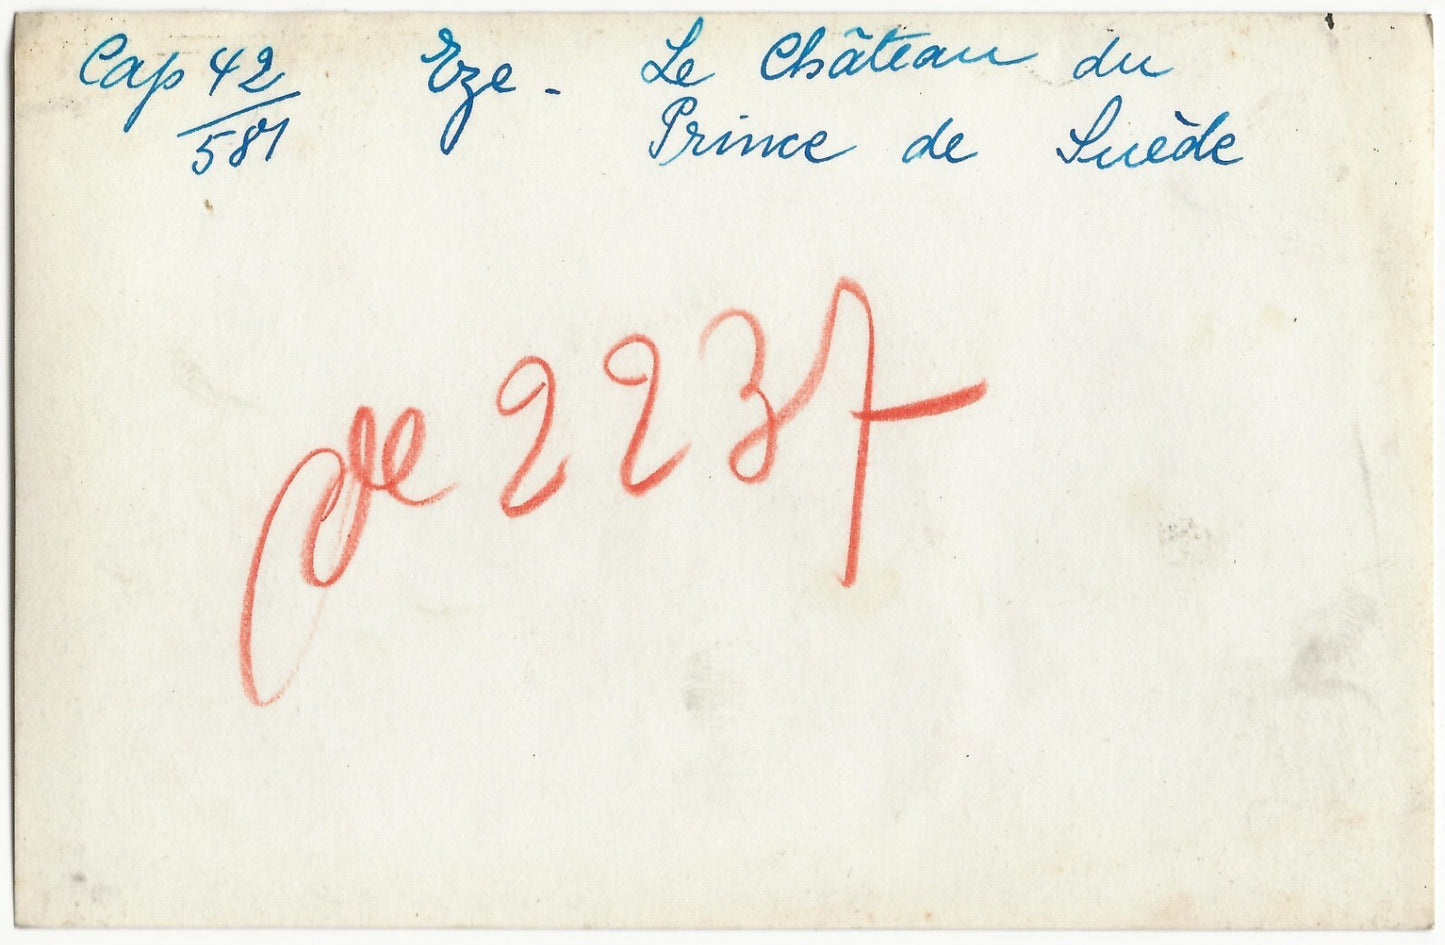 Cap 42 Eze - Le Château du
581 Prince de Suède
2237